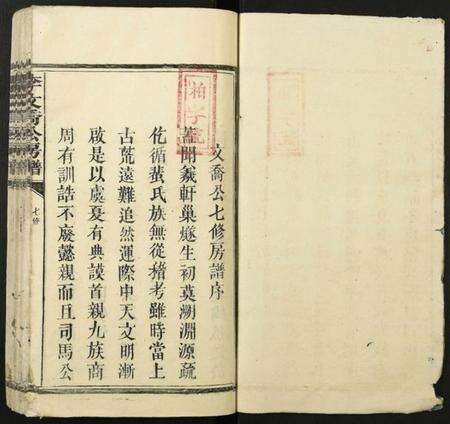 文喬公七修房譜序
蓋聞羲軒巢燧生初莫溯淵源疏
仡循蜚氏族無從稽考雖時當上
古荒遠難追然運際中天文明漸
啟是以虞夏有典謨首親九族商
周有訓誥不廢懿親而且司馬公
李文喬公房譜
七修